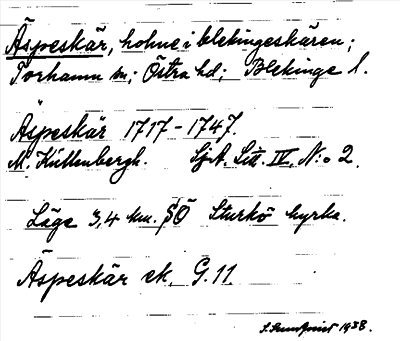 Äspeskär, holme i blekingeskären;
Torhamn sn; Östra hd; Blekinge l.
Äspeskär 1717-1747.
M. Küllenbergh. SjA. Litt. IV, N:o 2.
Läge 3,4 km. SÖ Sturkö kyrka.
Äspeskär ek. G. 11.
1938.